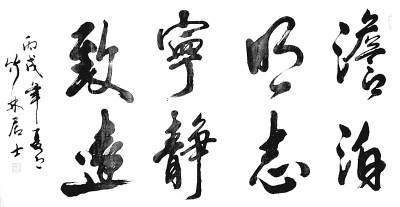 澹泊
明志
寧靜
致遠
丙戌年夏月
竹林居士